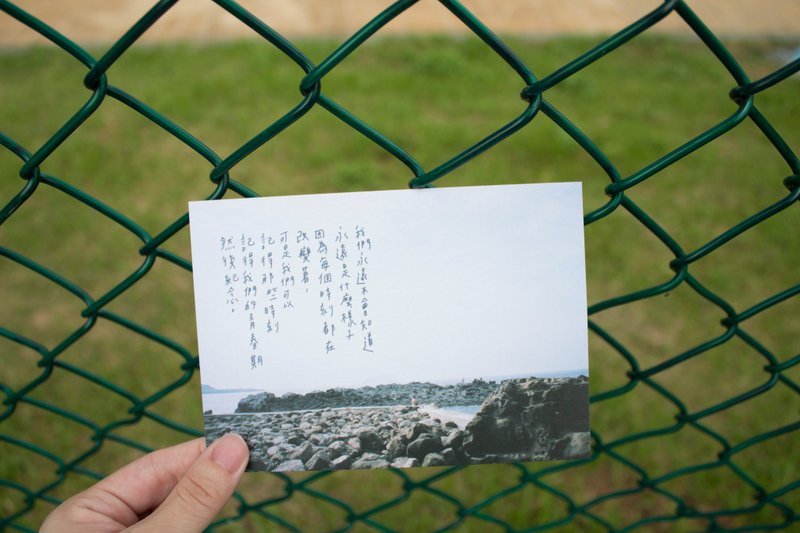 我們永遠不會知道
永遠是什麼樣子
因為每個時刻都在
改變著，
可是我們可以
記得那些時刻
記得我們的青春期
然後紀念。